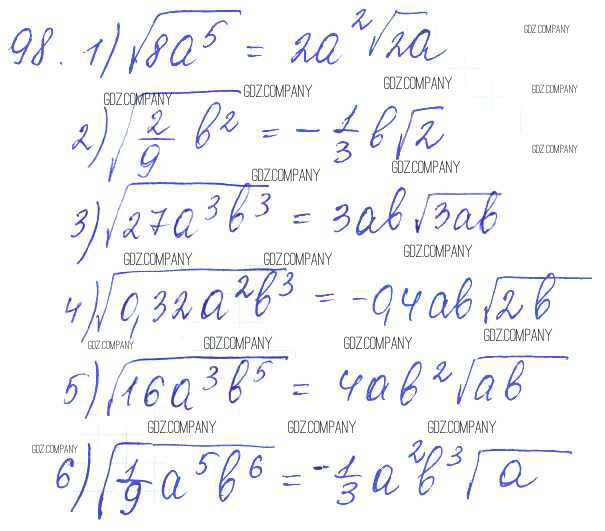 98. 1) √(8a⁵) = 2a²√(2a)
GDZ.COMPANY
GDZ.COMPANY GDZ.COMPANY GDZ.COMPANY GDZ.COMPANY
2) √(2/9 b²) = - 1/3 b√2
GDZ.COMPANY
GDZ.COMPANY GDZ.COMPANY
3) √(27a³b³) = 3ab√(3ab)
GDZ.COMPANY GDZ.COMPANY GDZ.COMPANY
4) √(0,32a²b³) = -0,4ab√(2b)
GDZ.COMPANY GDZ.COMPANY GDZ.COMPANY GDZ.COMPANY
5) √(16a³b⁵) = 4ab²√(ab)
GDZ.COMPANY GDZ.COMPANY GDZ.COMPANY
GDZ.COMPANY
6) √(1/9 a⁵b⁶) = - 1/3 a²b³√a